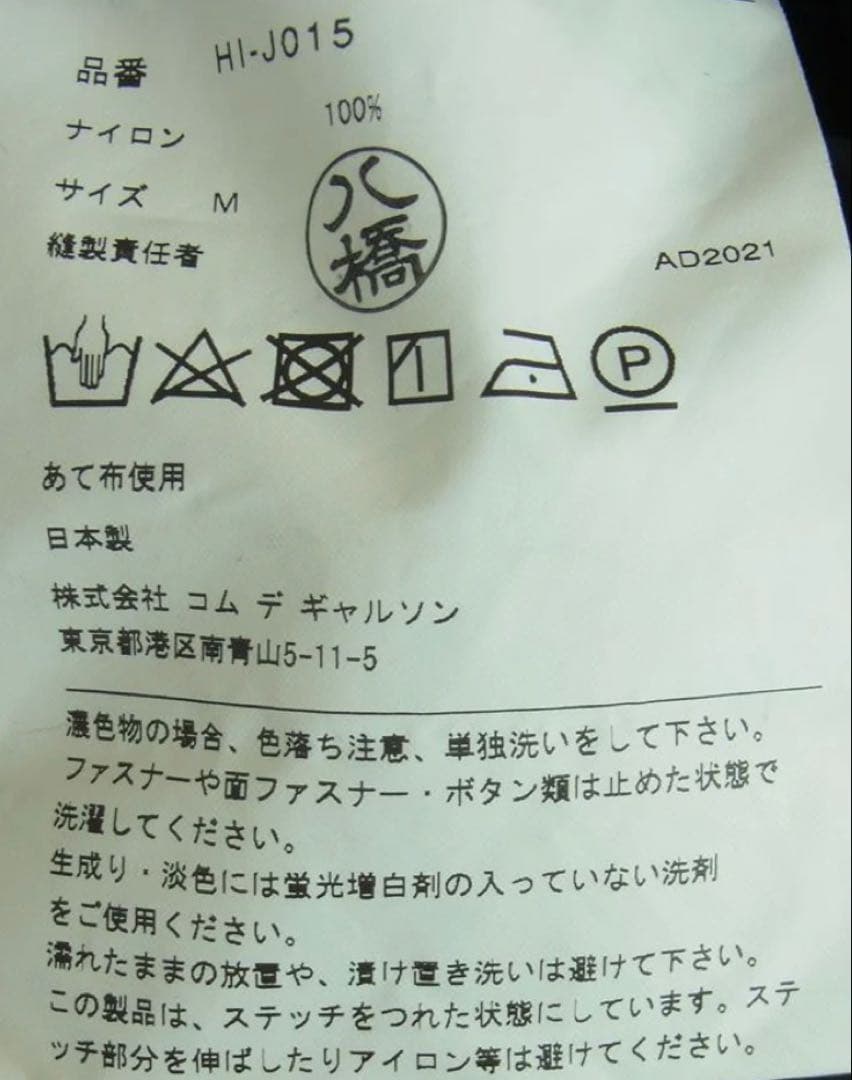 品番 HI-J015
ナイロン 100%
サイズ M
縫製責任者 八橋 AD2021
P
あて布使用
日本製
株式会社 コム デ ギャルソン
東京都港区南青山5-11-5
濃色物の場合、色落ち注意、単独洗いをして下さい。
ファスナーや面ファスナー・ボタン類は止めた状態で
洗濯してください。
生成り・淡色には蛍光増白剤の入っていない洗剤
をご使用ください。
濡れたままの放置や、漬け置き洗いは避けて下さい。
この製品は、ステッチをつれた状態にしています。ステ
ッチ部分を伸ばしたりアイロン等は避けてください。